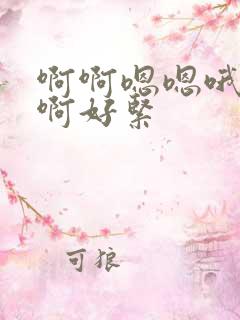 啊啊嗯嗯哦
啊好紧
可狼